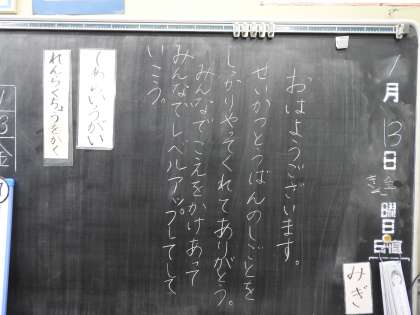 1月13日
金
きん
曜日
日直
みぎ
おはようございます。
せいかつとうばんのしごとを
しっかりやってくれてありがとう。
みんなでこえをかけあって
みんなでレベルアップしてして
いこう。
てあらいうがい
れんらくちょうをかく
1
3
金